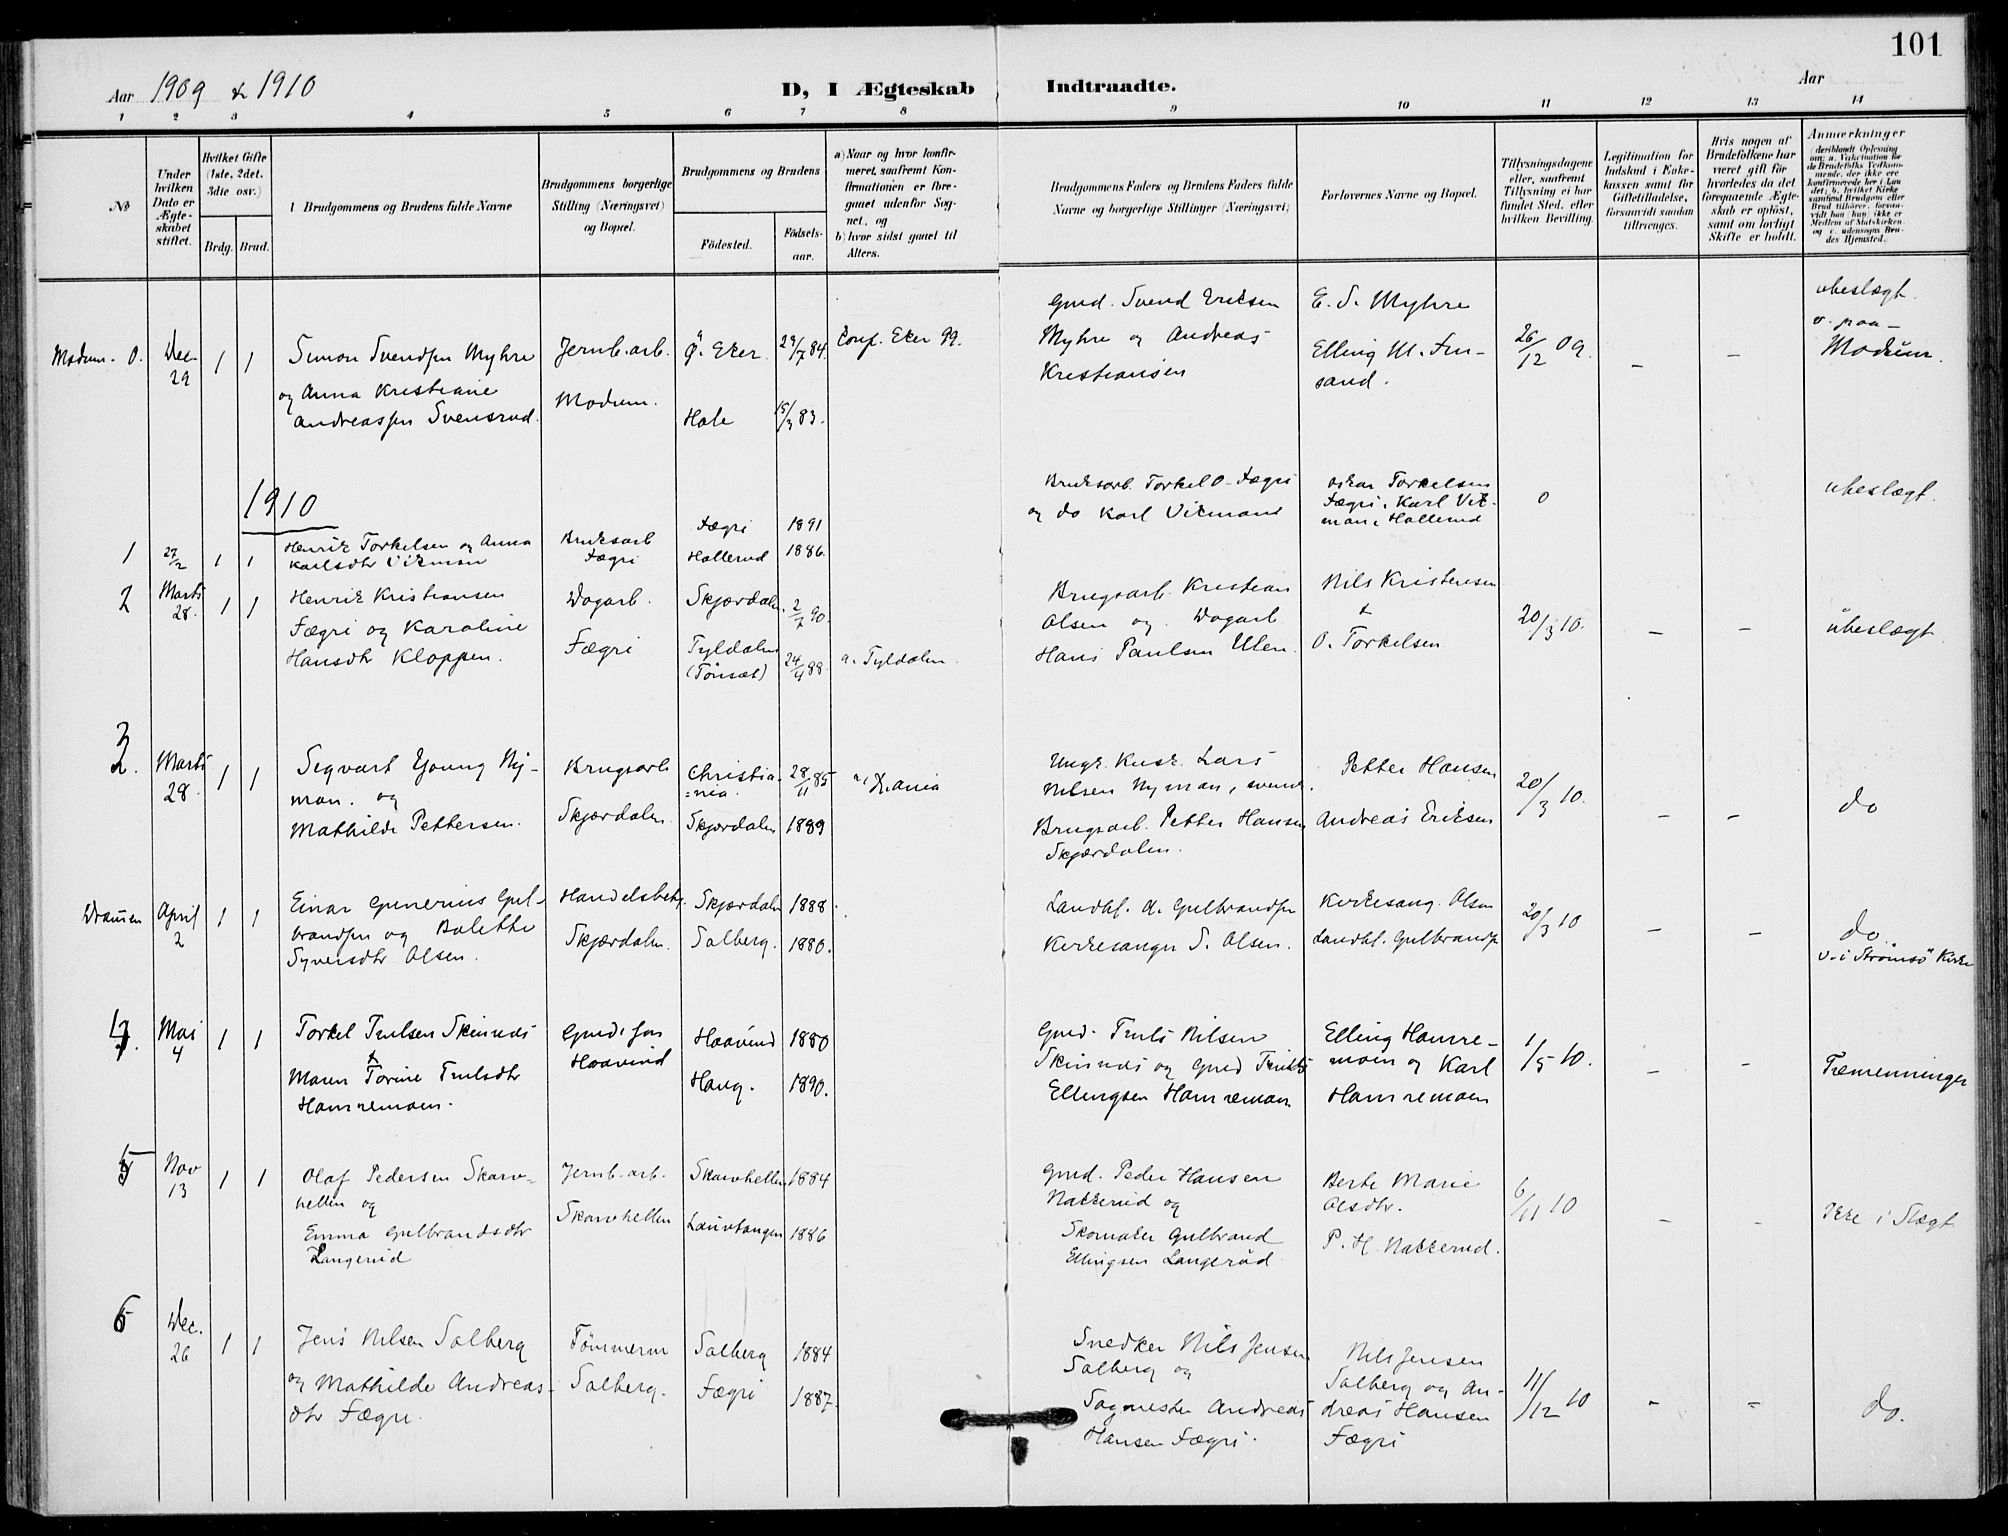 101
Aar 1909 & 1910
D, I Ægteskab Indtraadte.
Aar
1 2 3 4 5 6 7 8 9 10 11 12 13 14
No
Under hvilken Dato er Ægteskabet stiftet.
Hvilket Gifte (1ste, 2det, 3die osv.)
Brdg. Brud.
Brudgommens og Brudens fulde Navne
Brudgommens borgerlige Stilling (Næringsvei) og Bopæl.
Brudgommens og Brudens
Födested.
Födsels-aar.
a) Naar og hvor konfirmeret, saafremt Konfirmationen er foregaaet udenfor Sognet, og
b) hvor sidst gaaet til Alters.
Brudgommens Faders og Brudens Faders fulde Navne og borgerlige Stillinger (Næringsvei)
Forlovernes Navne og Bopæl.
Tillysningsdagene eller, saafremt Tillysning ei har fundet Sted, efter hvilken Bevilling.
Legitimation for Indskud i Enkekassen samt for Giftetilladelse, forsaavidt saadan tiltrænges.
Hvis nogen af Brudefolkene har været gift før hvorledes da det foregaaende Ægteskab er oplöst, samt om lovligt Skifte er holdt.
Anmærkninger
Modum. O. Dec 29 1 1
Simon Svendsen Myhre
og Anna Kristiane
Andreassen Svensrud.
Jernb. arb.
Modum.
Ø. Eker 29/7 84.
Hole 15/3 83.
Conf. Eker 99.
Gmd. Svend Eriksen
Myhre og Andreas
Kristiansen
E. S. Myhre
Elling M. Fin-
sand.
26/12 09.
-
-
ubeslægt.
v. paa
Modum.
1910
1 27/2 1 1
Henrik Torkelsen og Anna
Karlsdtr Vikman
Bruksarb
Fægri
Fægri 1891
Hollerud 1886.
Bruksarb. Torkel O. Fægri
og do Karl Vikman
Oskar Torkelsen
Fægri, Karl Vik-
man, Hollerud
0
ubeslægt.
2 Marts 28. 1 1
Henrik Kristiansen
Fægri og Karoline
Hansdtr Kloppen.
Dagarb.
Fægri
Skjærdalen. 2/7 90.
Tyldalen
(Tönset) 24/4 88.
a. Tyldalen.
Brugsarb. Kristian
Olsen og Dagarb
Hans Paulsen Ulen.
Nils Kristensen
&
O. Torkelsen
20/3 10.
-
-
ubeslægt
3 Marts 28. 1 1
Sigvart Young Ny-
man. og
Mathilde Pettersen.
Brugsarb
Skjærdalen.
Christia-
=nia. 28/11 85
Skjærdalen 1889
a. X.ania
Lars
Nilsen Nyman, svensk.
Brugsarb. Petter Hansen
Skjærdalen.
Petter Hansen
Andreas Eriksen
20/3 10.
-
-
do
Drammen April 2 1 1
Einar Gunerius Gul-
brandsen og Bolette
Syversdtr Olsen.
Handelsbetj.
Skjærdalen.
Skjærdalen 1888.
Solberg. 1880.
Landh. A. Gulbrandsen
Kirkesanger S. Olsen.
Kirkesang. Olsen
Landh. Gulbrandsen
20/3 10
-
-
do
v. i Strømsø Kirke
4. Mai 4 1 1
Torkel Trulsen Skinnes
&
Maren Torine Trulsdtr
Hamremoen.
Gmd. søn
Haavind
Haavind 1880
Haug. 1890.
Gmd. Truls Nilsen
Skinnes og Gmd Truls
Ellingsen Hamremoen
Elling Hamre-
moen og Karl
Hamremoen
1/5 10.
-
-
Tremenninger
5 Nov 13 1 1
Olaf Pedersen Skarv-
hellen og
Emma Gulbrandsdtr
Langerud
Jernb. arb.
Skarvhellen
Skarvhellen 1884
Laurtangen 1886
Gmd. Peder Hansen
Nakkerud og
Skomaker Gulbrand
Ellingsen Langerud
Berte Marie
Olsdtr.
P. H. Nakkerud.
6/11 10
-
-
Ikke i Slægt
6 Dec. 26 1 1
Jens Nilsen Solberg
og Mathilde Andreas-
dtr Fægri.
Tömmerm
Solberg.
Solberg 1884
Fægri 1887.
Snedker Nils Jensen
Solberg og
Sagmester Andreas
Hansen Fægri.
Nils Jensen
Solberg og An-
dreas Hansen
Fægri
11/12 10
-
-
do.